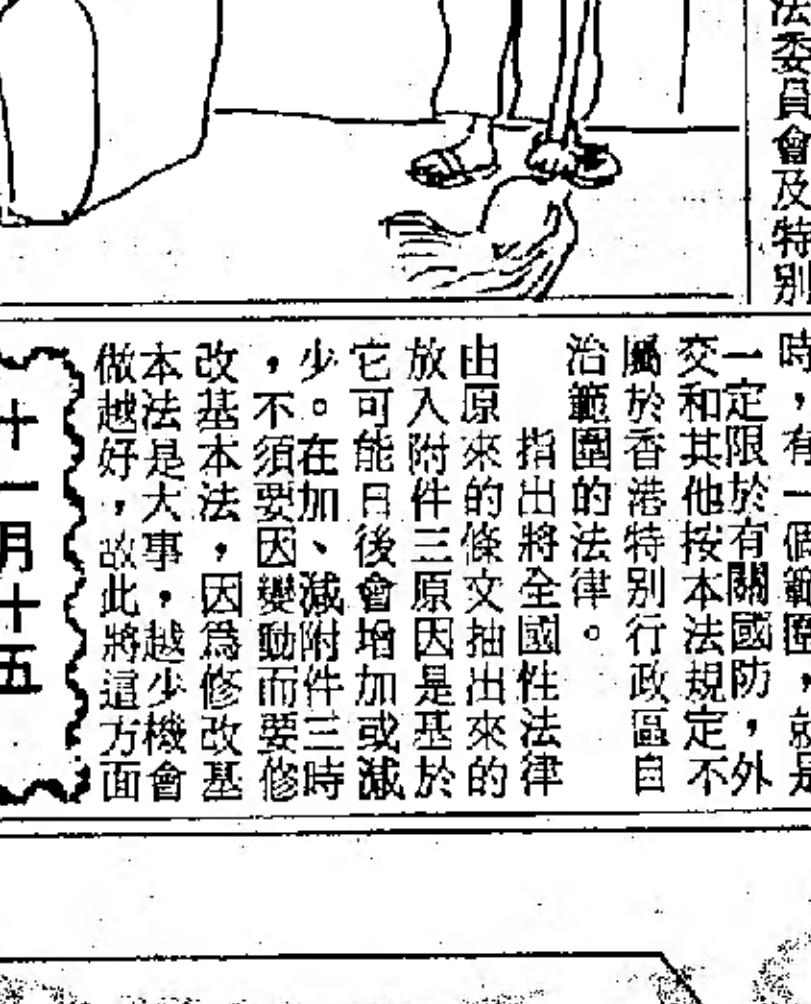 法委員會及特別
時，有一個範圍，就是
一定限於有關國防，外
交和其他按本法規定不
屬於香港特別行政區自
治範圍的法律。
指出將全國性法律
由原來的條文抽出來的
放入附件三原因是基於
它可能日後會增加或減
少。在加、減附件三時
，不須要因變動而要修
改基本法，因為修改基
本法是大事，越少機會
做越好，故此將這方面
十一月十五